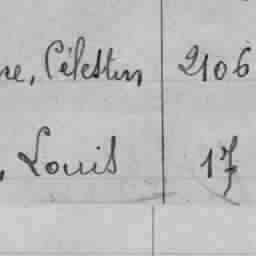 re, Célestin 2106
, Louis 17